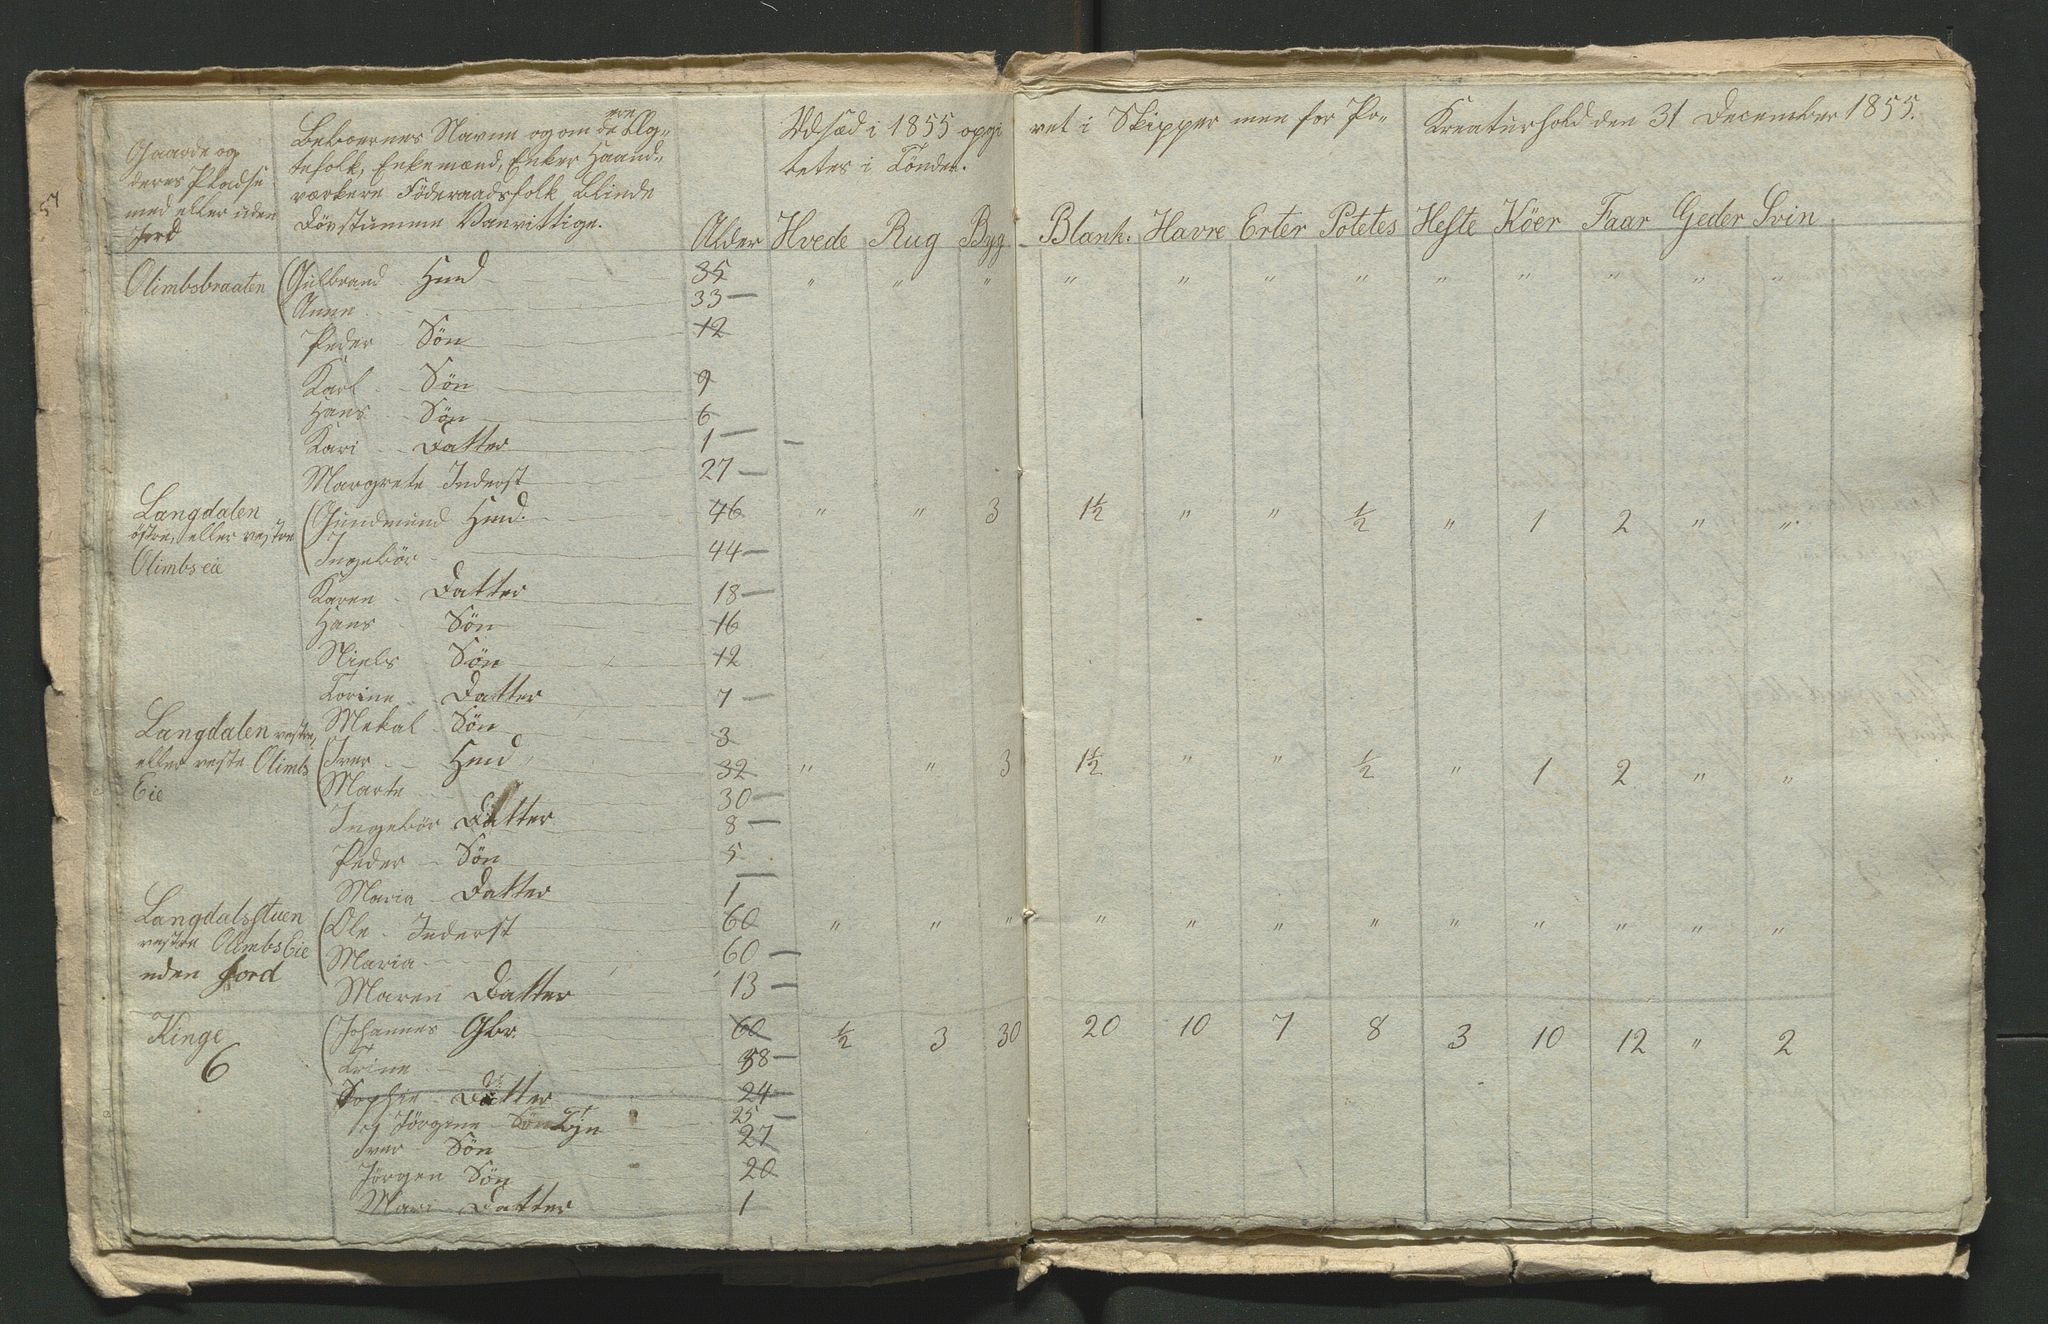 57
Gaarde og
deres Pladse
med eller uden
Jord
Beboernes Navne og om de ere Æg-
tefolk, Enkemænd, Enker Haand-
værkere Föderaadsfolk Blinde
Dövstumme Vanvittige.
Udsæd i 1855 opgi vet i Skipper men for Po-
tetes i Tönder.
Kreaturhold den 31 December 1855.
Alder Hvede Rug Byg Blank: Havre Erter Potetes Heste Köer Faar Geder Svin
Olimbsbraaten Gulbrand Hmd 35 " " " " " " " " " " " "
Anne 33 —
Peder Sön 12
Karl Sön 9
Hans Sön 6
Kari Datter 1 —
Margrete Inderst 27 —
Langdalen Gundmund Hmd: 46 " " 3 1½ " " ½ " 1 2 " "
östre, eller vestre Ingebör 44 —
Olimbs eie
Karen Datter 18 —
Hans Sön 16
Niels Sön 12
Torine Datter 7 —
Mekal Sön 3
Langdalen vestre, Iver Hmd 32 " " 3 1½ " " ½ " 1 2 " "
eller veste Olimbs Marte 30 —
Eie
Ingebör Datter 8 —
Peder Sön 5
Maria Datter 1
Langdalsstuen Ole Inderst 60 " " " " " " " " " " " "
vestre Olimbs Eie Maria 60 —
uden Jord Maren Datter 13 —
Kinge Johannes Gbr. 60 ½ 3 30 20 10 7 8 3 10 12 " 2
6 Trine 58 —
Sophie Datter 24
og Jörgine Tjn 25 —
Iver Sön 27
Jörgen Sön 20
Mari Datter 1